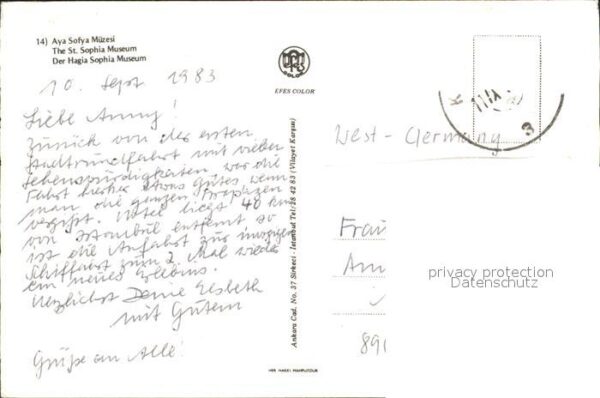 14) Aya Sofya Müzesi
The St. Sophia Museum
Der Hagia Sophia Museum
EFES COLOR
10. Sept 1983
Liebe Anny!
Zurück von der ersten
Stadtrundfahrt mit vielen
Sehenswürdigkeiten war die
Fahrt bisher etwas Gutes wenn
man die ganzen
vergißt. Hotel liegt 40 km
von Istanbul entfernt so
ist die Anfahrt zur
Schiffahrt zum 2. Mal wieder
ein neues Erlebnis.
Herzlichst Deine Elsbeth
mit Gustav
Grüße an Alle!
West-Germany
Frau
Ann
890
Ankara Cad. No. 37 Sirkeci - İstanbul Tel: 28 42 83 (Vilayet Karşısı)
HER HAKKI MAHFUZDUR
K
3
privacy protection
Datenschutz